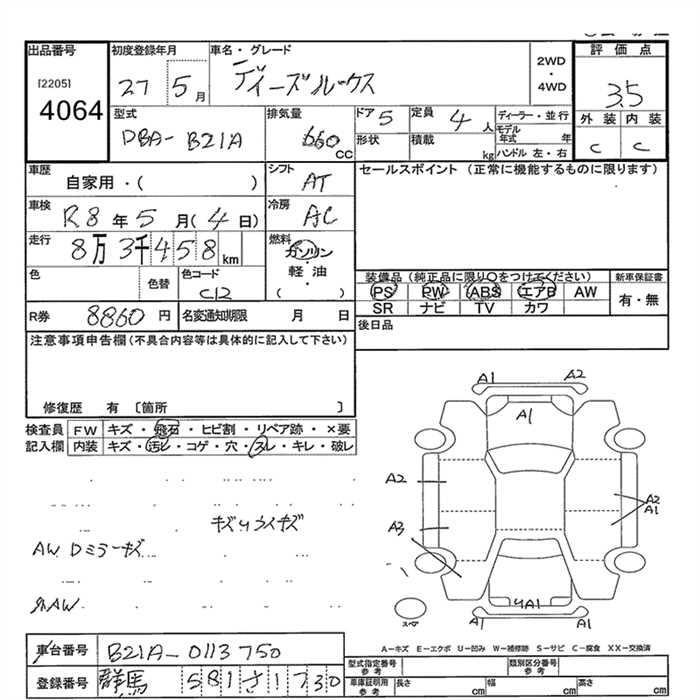 出品番号
[2205]
4064
初度登録年月
27 5月
車名・グレード
デイズルークス
2WD
・
4WD
評価点
3.5
外装 内装
C C
型式
DBA-B21A
排気量
660 CC
ドア 5
形状
定員 4人
積載 kg
ディーラー・並行
モデル年式 年
ハンドル 左・右
車歴
自家用・( )
シフト
AT
セールスポイント (正常に機能するものに限ります)
車検
R8年5月(4日)
冷房
AC
走行
8万3千458km
燃料
ガソリン
・
軽油
( )
色
色替
色コード
C12
装備品 (純正品に限り○をつけてください)
PS PW ABS エアB AW
SR ナビ TV カワ
新車保証書
有・無
R券 8860円
名変通知期限 月 日
後日品
注意事項申告欄(不具合内容等は具体的に記入して下さい)
修復歴 有 〔箇所 〕
検査員記入欄
FW キズ・飛石・ヒビ割・リペア跡・×要
内装 キズ・汚レ・コゲ・穴・スレ・キレ・破レ
AW Dミラーキズ
A1 A2
A1
A2
A2
A1
A3
A1
A1 A1
スペア
A-キズ E-エクボ U-凹み W-補修跡 S-サビ C-腐食 XX-交換済
車台番号 B21A-0113750
登録番号 群馬 581さ1730
型式指定番号 参考
類別区分番号 参考
車庫証明用 参考
長さ cm
幅 cm
高さ cm